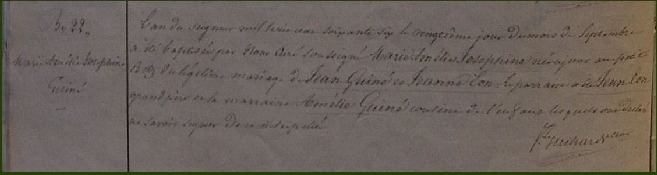 N. 22
Marie Amélie Josephine
Guiné
L'an du Seigneur mil huit cent soixante six le vingtième jour du mois de Septembre
a été baptisée par Nous Curé soussigné Marie Amélie Josephine née
du légitime mariage de Jean Guiné et Jeanne Lou le parrain a été Jean Lou
grand père et la marraine Amélie Guiné cousine de l'enfant lesquels ont déclaré
ne savoir signer de ce interpellé